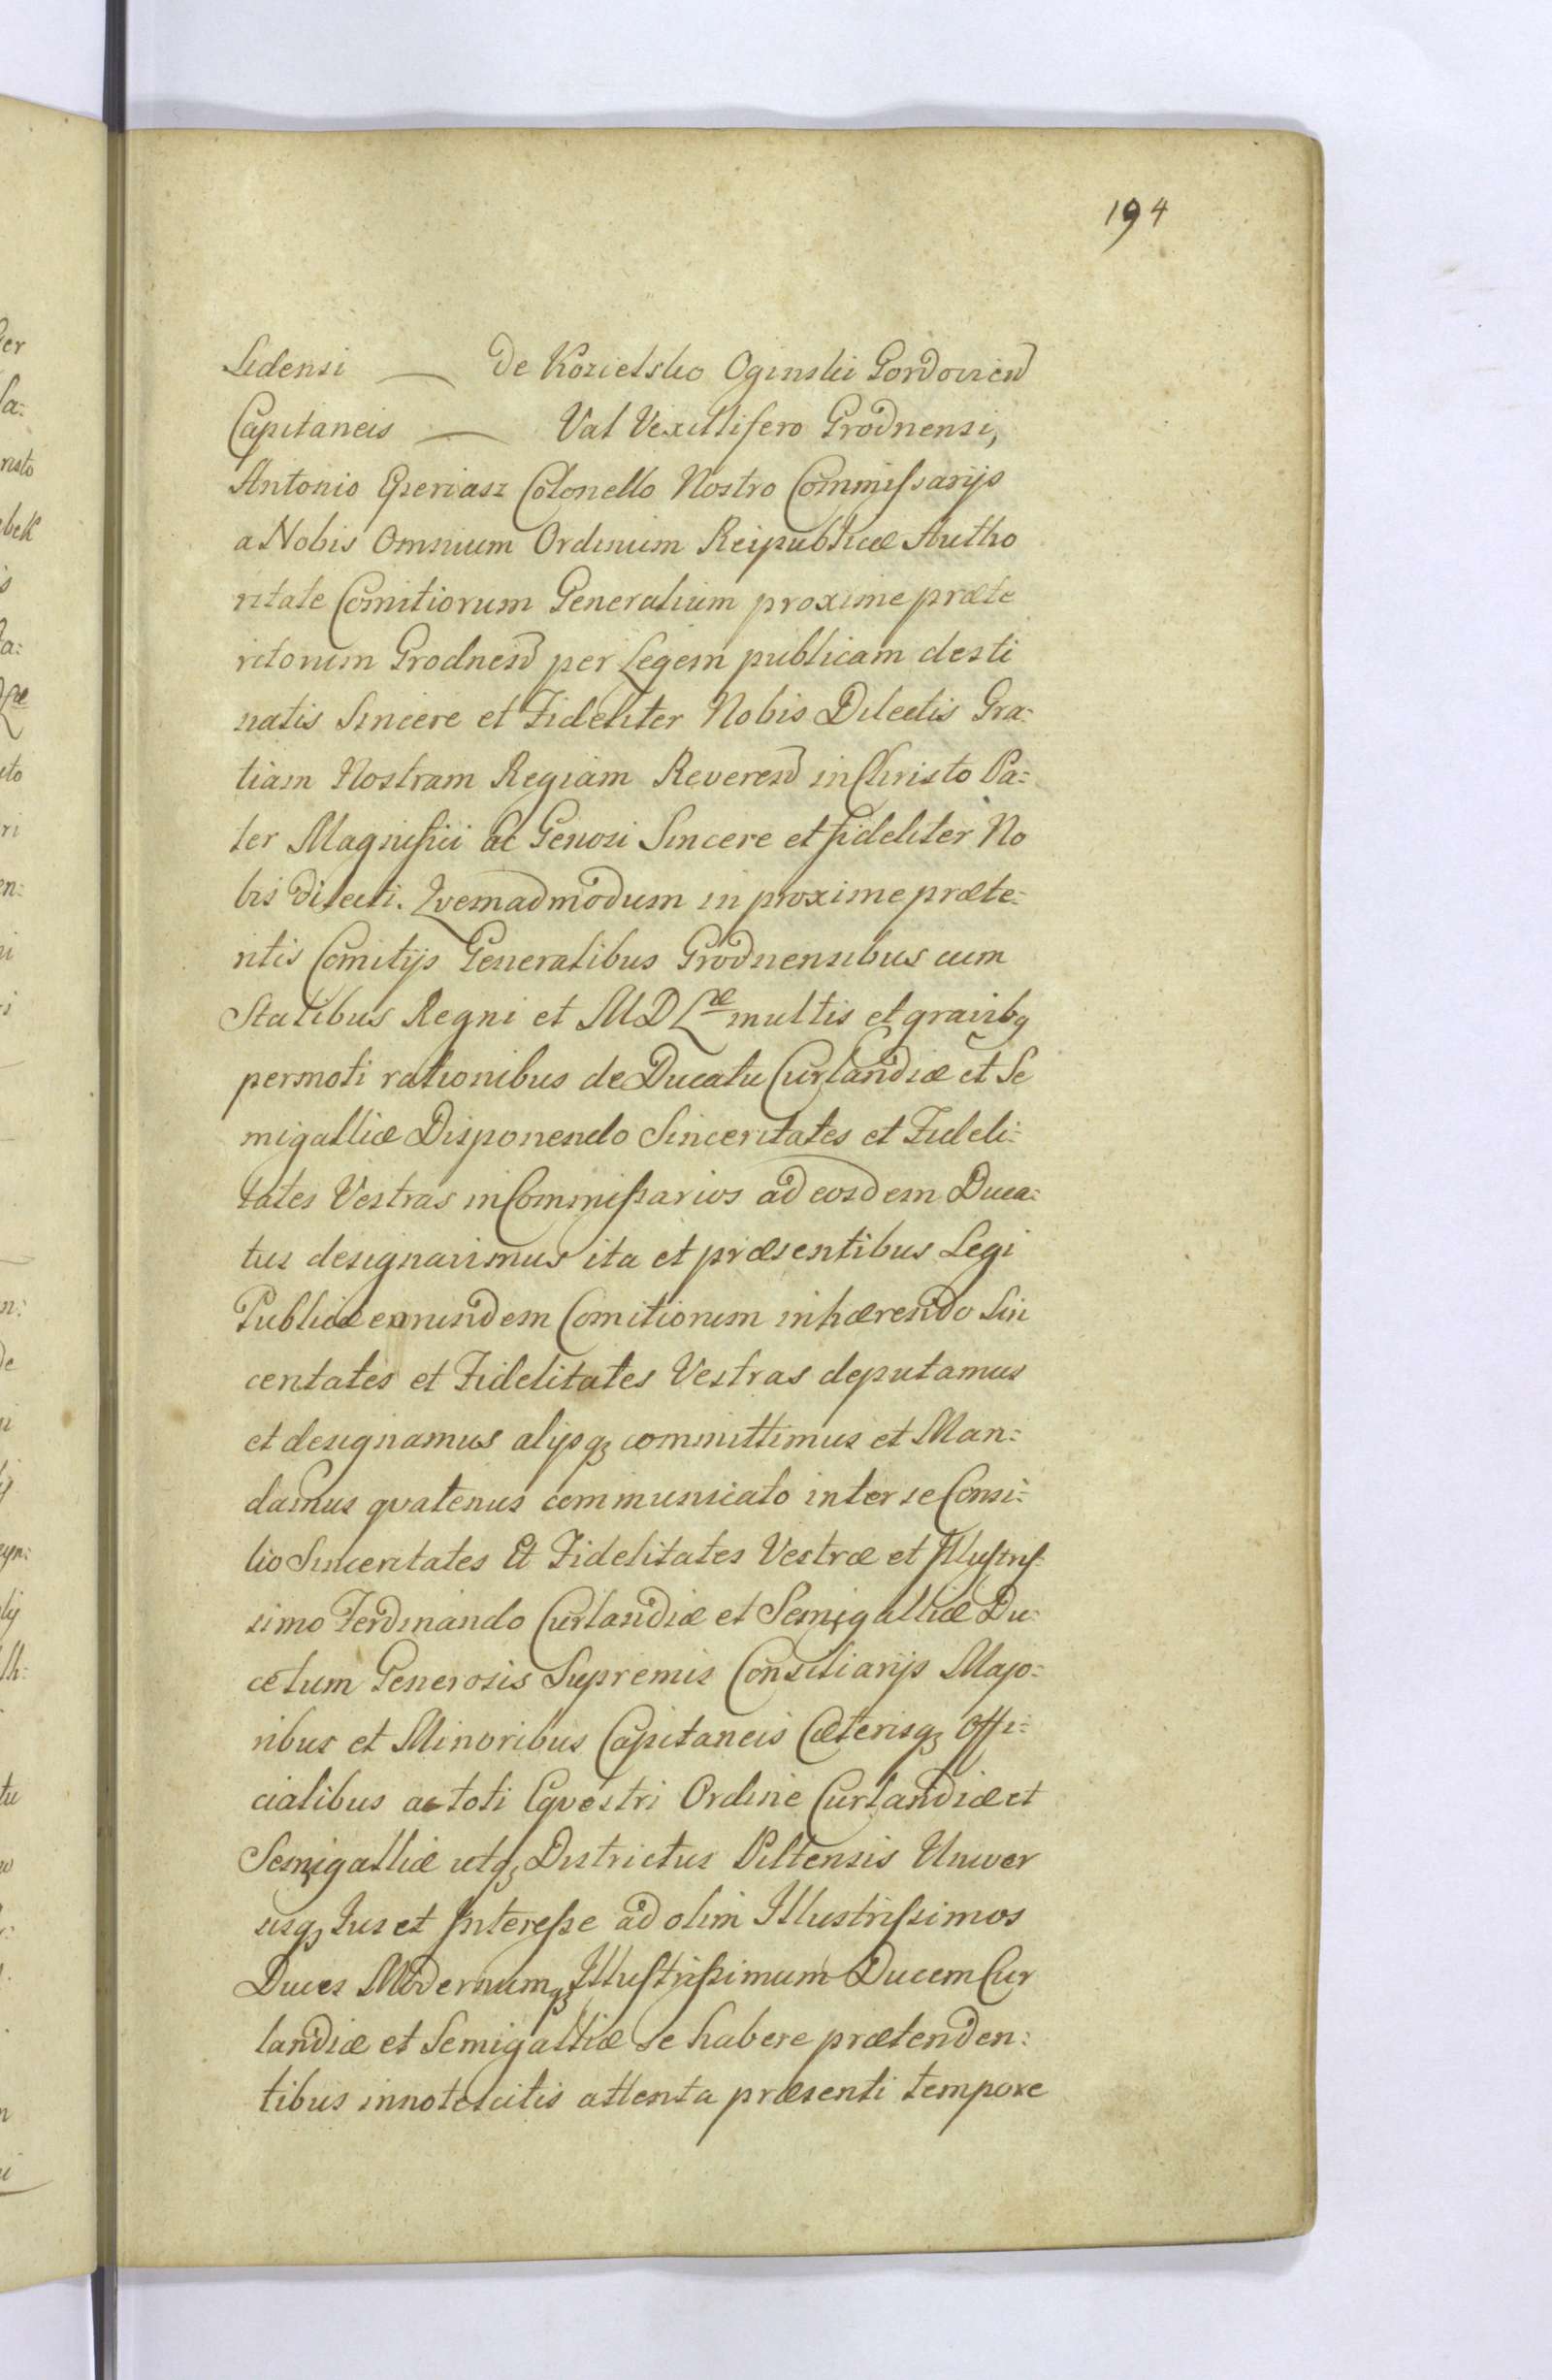 194
Lidensi — De Kozielsko Oginski Gordovien
Capitaneis — Val Vexillifero Grodnensi,
Antonio Eperiasz Colonello Nostro Commissarijs
a Nobis Omnium Ordinum Reipublicæ Autho
ritate Comitiorum Generalium proxime præte
ritorum Grodnen per Legem publicam desti
natis Sincere et Fideliter Nobis Dilectis Gra:
tiam Nostram Regiam Reveren in Christo Pa:
ter Magnifici ac Genosi Sincere et fideliter No
bis Dilecti. Qvemadmodum in proxime præte:
ritis Comitijs Generalibus Grodnensibus cum
Statibus Regni et MDLæ multis et gravibq
permoti rationibus de Ducatu Curlandiæ et Se
migalliæ Disponendo Sinceritates et Fideli:
tates Vestras in Commissarios ad eosdem Duca:
tus designavimus ita et præsentibus Legi
Publicæ eorundem Comitiorum inhærendo Sin
ceritates et Fidelitates Vestras deputamus
et designamus alijsq; committimus et Man:
damus qvatenus communicato inter se Consi:
lio Sinceritates Et Fidelitates Vestræ et Illustris
simo Ferdinando Curlandiæ et Semigalliæ Du:
ce tum Generosis Supremis Consiliarijs Majo:
ribus et Minoribus Capitaneis Cæterisq; Offi:
cialibus ac toti Eqvestri Ordine Curlandiæ et
Semigalliæ utq; Districtus Piltensis Univer
sisq; Jus et Interesse ad olim Illustrissimos
Duces Modernumq; Illustrissimum Ducem Cur
landiæ et Semigalliæ se habere prætenden:
tibus innotescitis attenta præsenti tempore